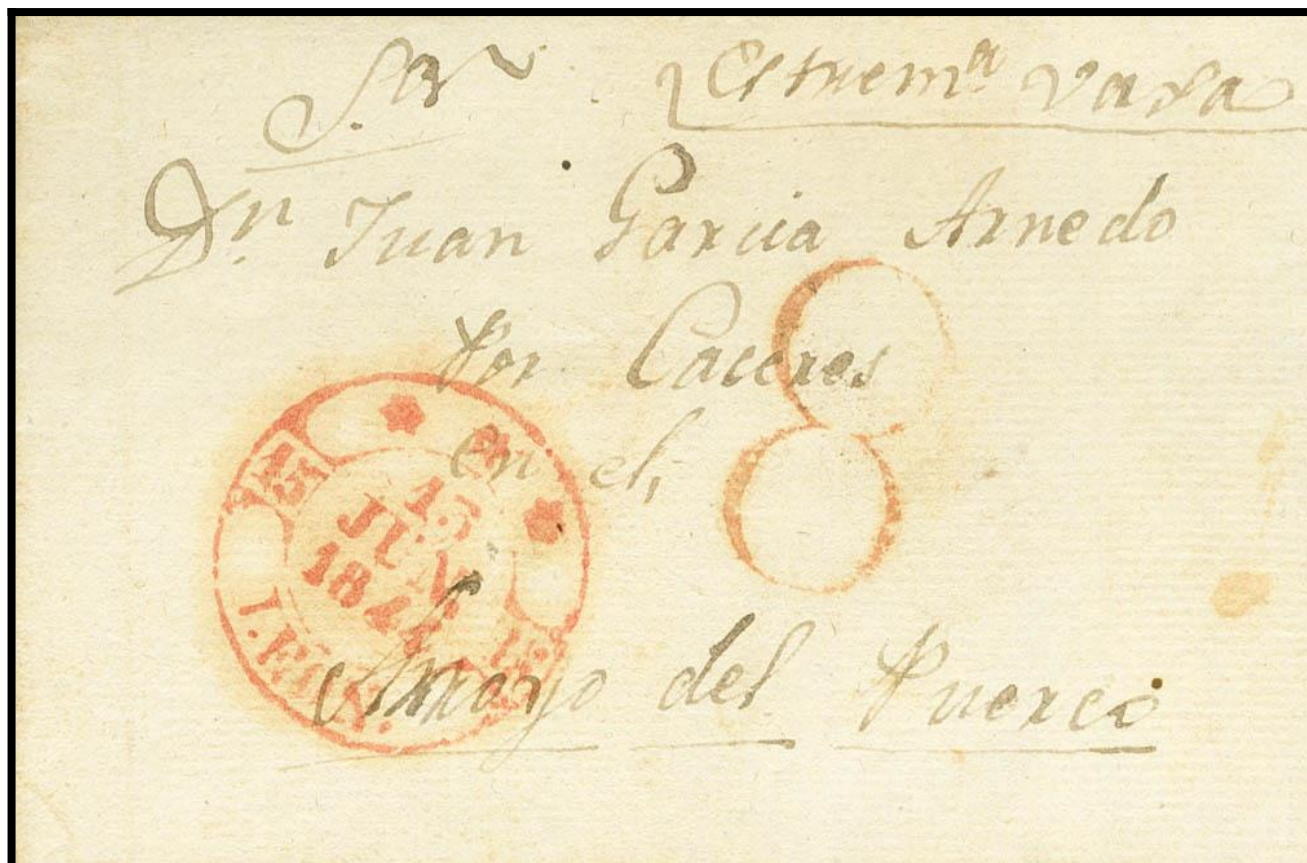 Sor Estremª vaxa
Dn. Juan Garcia Arnedo
Por Caceres
en el,
8
15
15
JUN.
184
LEON.
Arroyo del Puerco